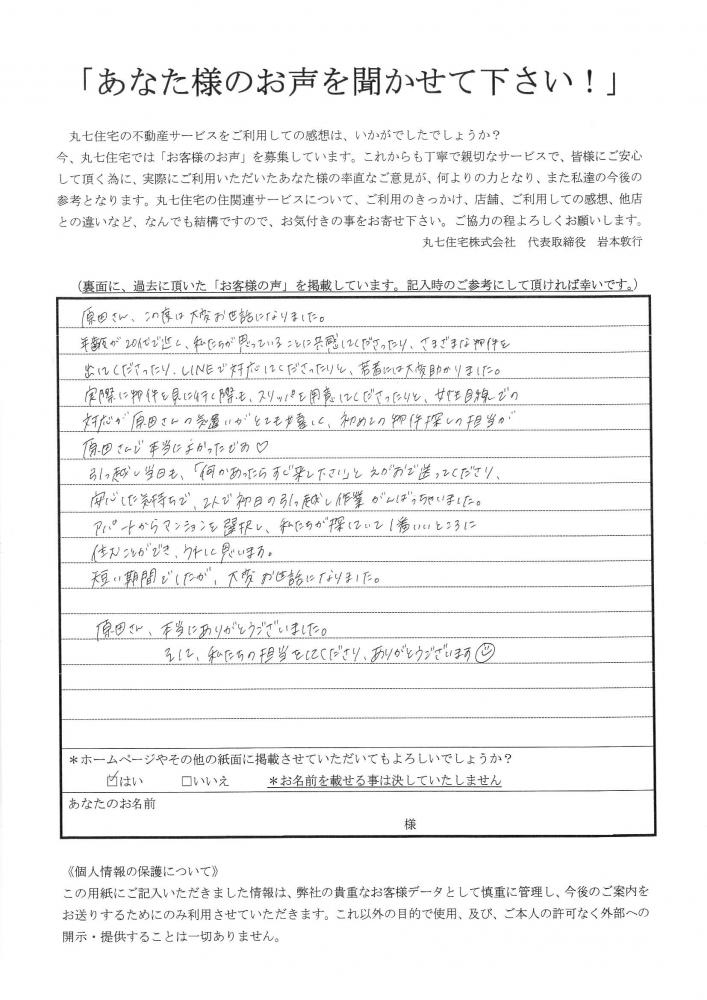 「あなた様のお声を聞かせて下さい！」
丸七住宅の不動産サービスをご利用しての感想は、いかがでしたでしょうか？
今、丸七住宅では「お客様のお声」を募集しています。これからも丁寧で親切なサービスで、皆様にご安心
して頂く為に、実際にご利用いただいたあなた様の率直なご意見が、何よりの力となり、また私達の今後の
参考となります。丸七住宅の住関連サービスについて、ご利用のきっかけ、店舗、ご利用しての感想、他店
との違いなど、なんでも結構ですので、お気付きの事をお寄せ下さい。ご協力の程よろしくお願いします。
丸七住宅株式会社　代表取締役　岩本敦行
（裏面に、過去に頂いた「お客様の声」を掲載しています。記入時のご参考にして頂ければ幸いです。）
原田さん、この度は大変お世話になりました。
年齢が20代で近く、私たちが思っていることに共感してくださったり、さまざまな物件を
出してくださったり、LINEで対応してくださったりと、若者には大変助かりました。
実際に物件を見に行く際も、スリッパを用意してくださったりと、女性目線での
対応が原田さんの気遣いがとても嬉しく、初めての物件探しの担当が
原田さんで本当によかったです♡
引っ越し当日も、「何かあったらすぐ来て下さい」とえがおで送ってくださり、
安心した気持ちで、2人で初日の引っ越し作業がんばっちゃいました。
アパートからマンションを選択し、私たちが探していて1番いいところに
住むことができ、うれしく思います。
短い期間でしたが、大変お世話になりました。
原田さん、本当にありがとうございました。
そして、私たちの担当をしてくださり、ありがとうございます☺
＊ホームページやその他の紙面に掲載させていただいてもよろしいでしょうか？
☑はい　□いいえ　＊お名前を載せる事は決していたしません
あなたのお名前
様
《個人情報の保護について》
この用紙にご記入いただきました情報は、弊社の貴重なお客様データとして慎重に管理し、今後のご案内を
お送りするためにのみ利用させていただきます。これ以外の目的で使用、及び、ご本人の許可なく外部への
開示・提供することは一切ありません。